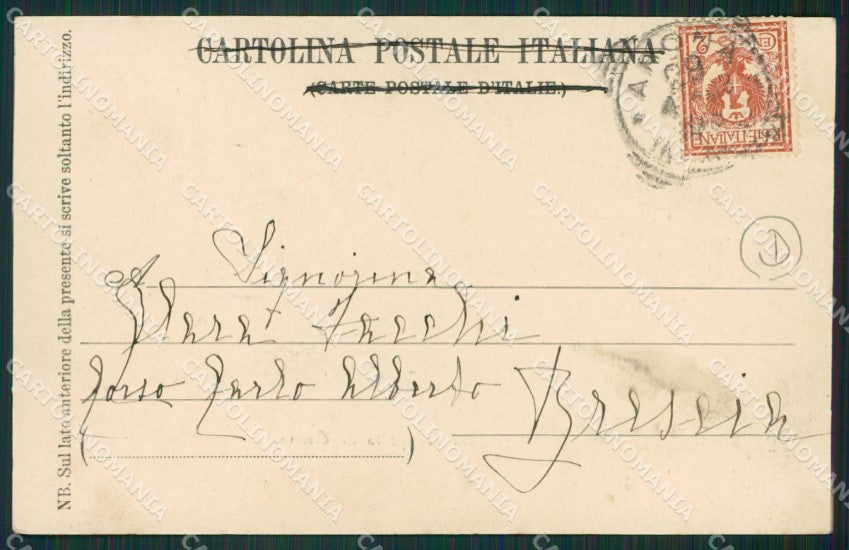 CARTOLINA POSTALE ITALIANA
(CARTE POSTALE D'ITALIE.)
ARONA
NB. Sul lato anteriore della presente si scrive soltanto l'indirizzo.
Signorina
Clara Facchi
Corso Carlo Alberto Brescia
POSTE ITALIANE
2
D
CARTOLINOMANIA